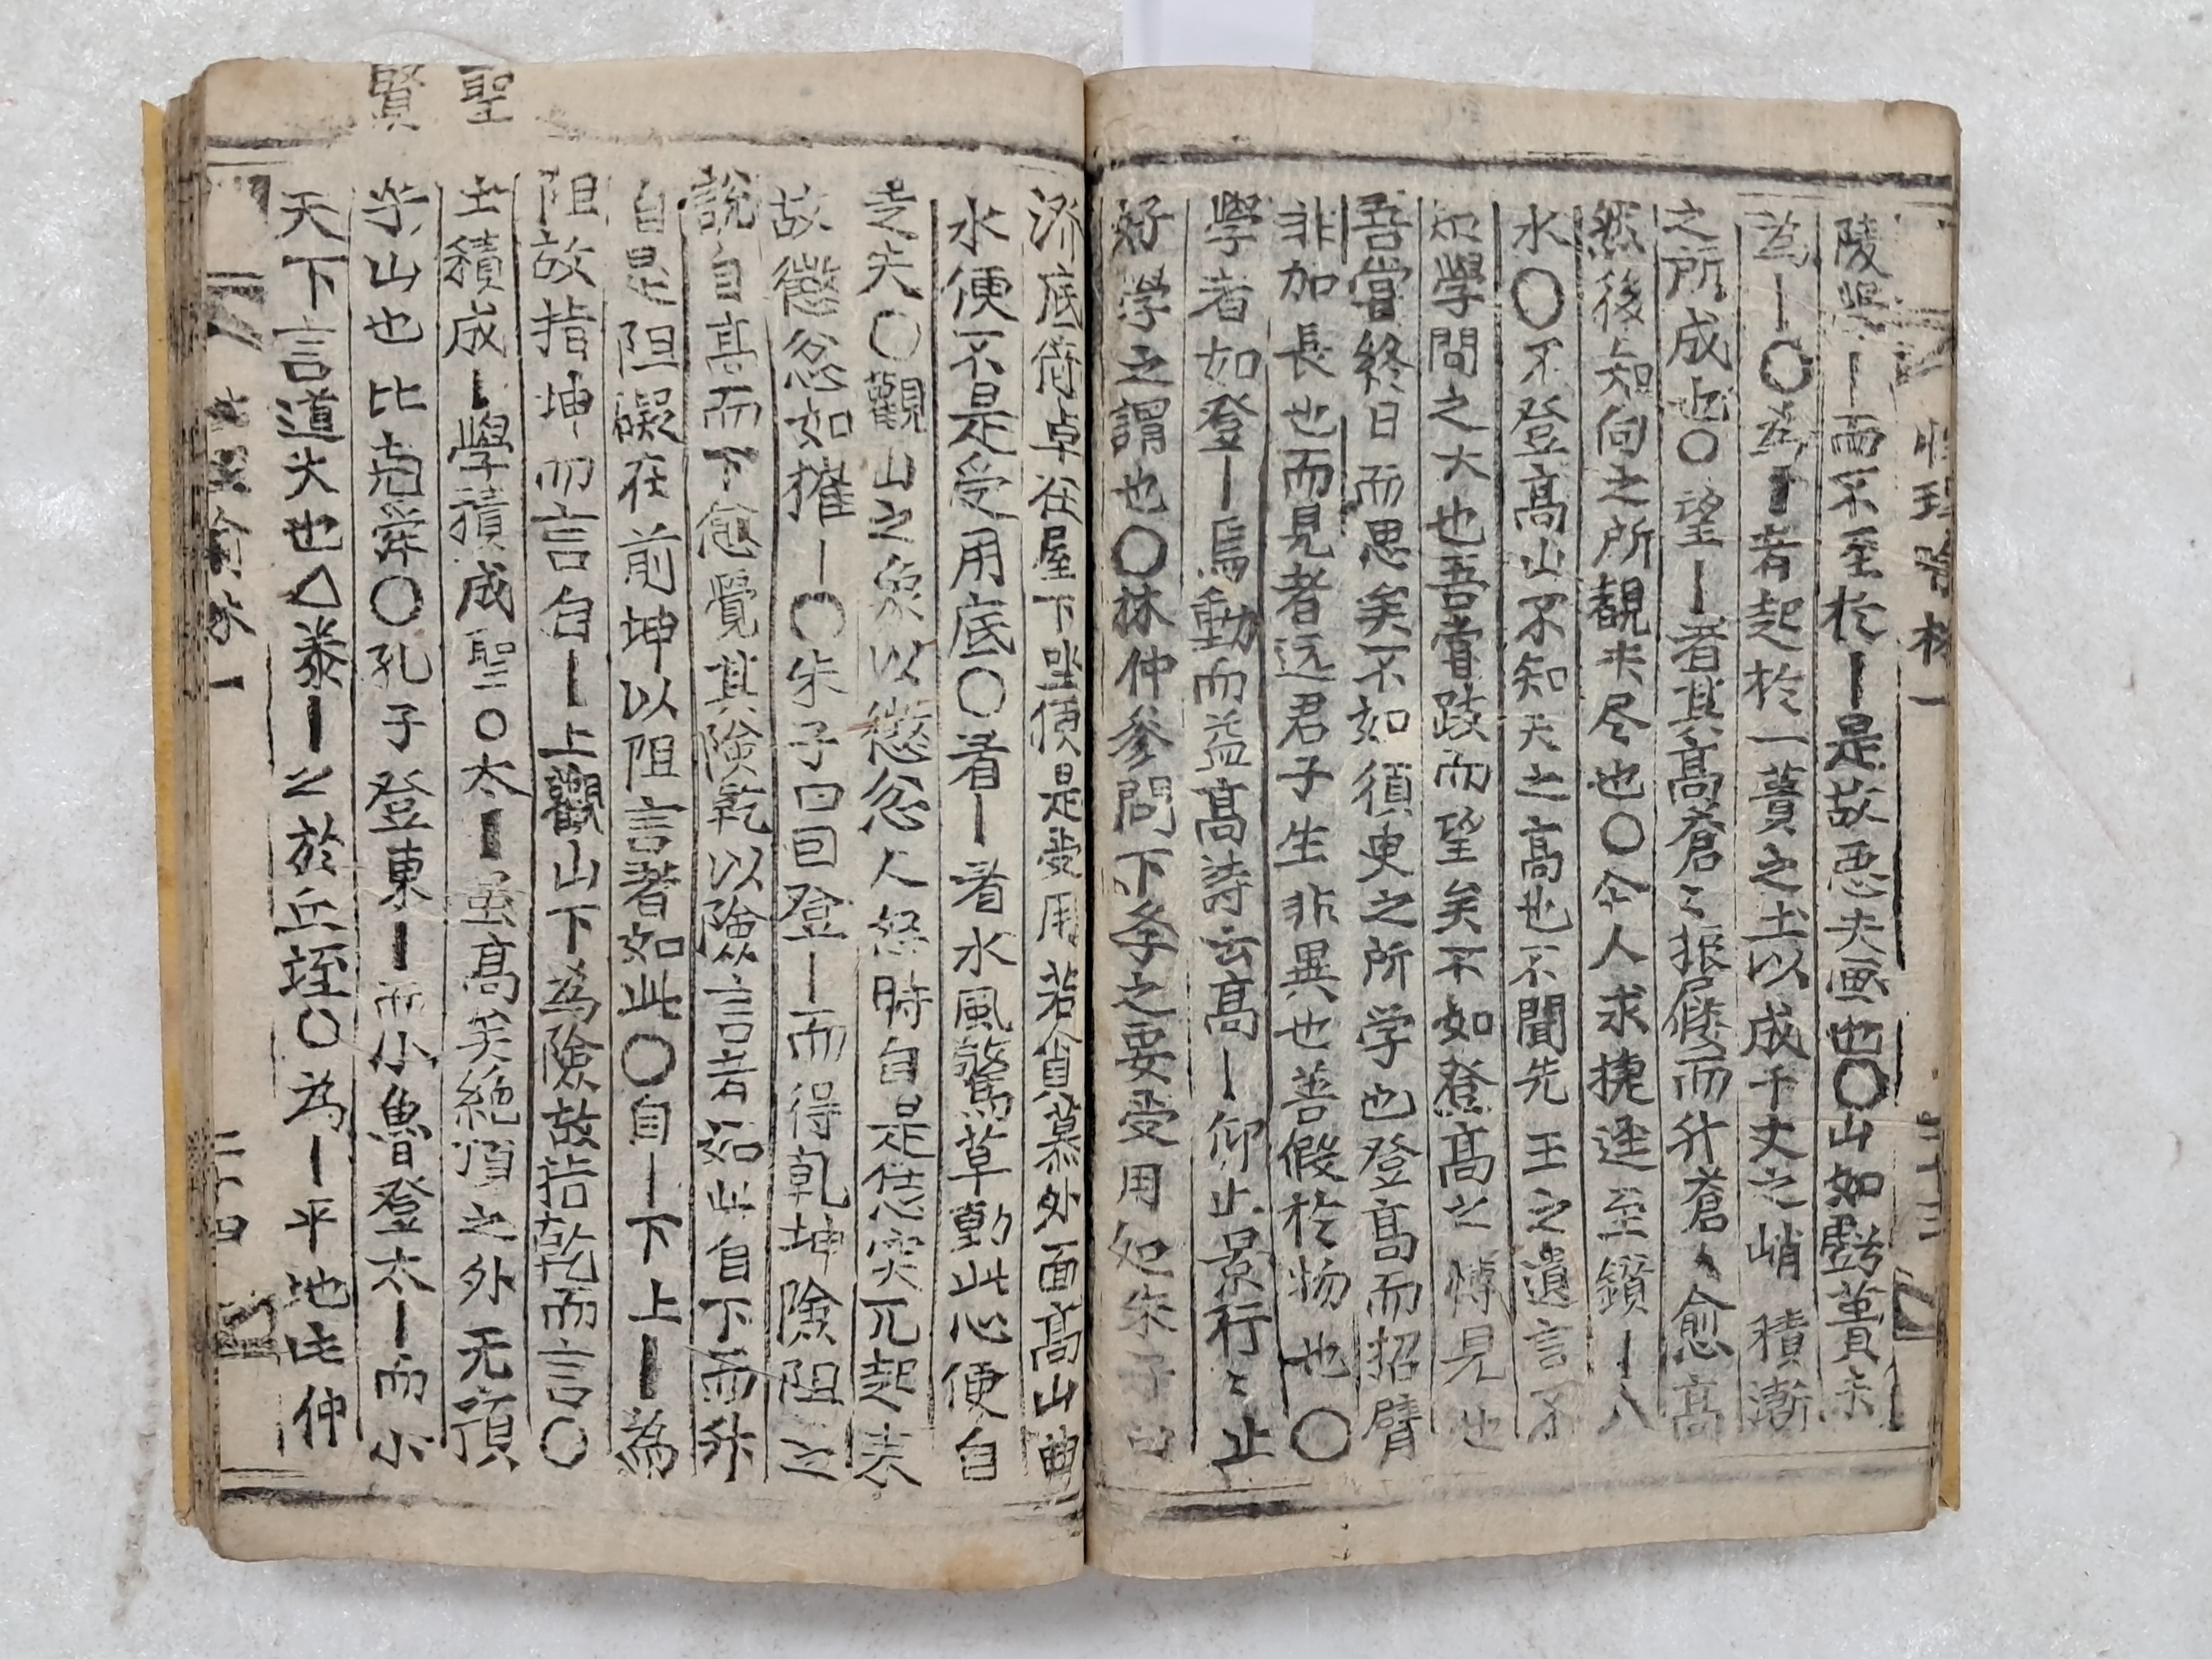 性理 一
二十三
陵學丨而不至於丨是故惡夫画也〇山如譬蕢未
為丨〇為丨者起於一蕢之土以成千丈之峭 積漸
之所成也〇望丨者其高蒼〻振屨而升蒼〻愈高
然後知向之所覩未尽也〇今人求捷逕至鑽丨入
水〇不登高山不知天之高也不聞先王之遺言不
知學問之大也吾嘗跂而望矣不如登高之博見也
吾嘗終日而思矣不如須臾之所学也登高而招臂
非加長也而見者远君子生非異也善假於物也〇
學者如登丨焉動而益高詩云高丨仰止景行〻止
好學之謂也〇林仲參問下学之要受用処朱子曰
济底倚卓在屋下坐便是受用若貪慕外面高山曲
水便不是受用底〇看丨看水風驚草動此心便自
走失〇觀山之象以懲忿人怒時自是恁突兀起来
故懲忿如摧丨〇朱子曰囙登丨而得乾坤險阻之
說自高而下愈覺其險乾以險言者如此自下而升
自是阻礙在前坤以阻言著如此〇自丨下上丨為
阻故指坤而言自丨上觀山下為險故指乾而言〇
土積成丨學積成聖〇太丨虽高矣絶頂之外无預
乎山也比尭舜〇孔子登東丨而小魯登太丨而小
天下言道大也△泰丨之於丘垤〇為丨平地比仲
聖
賢
一
二十四